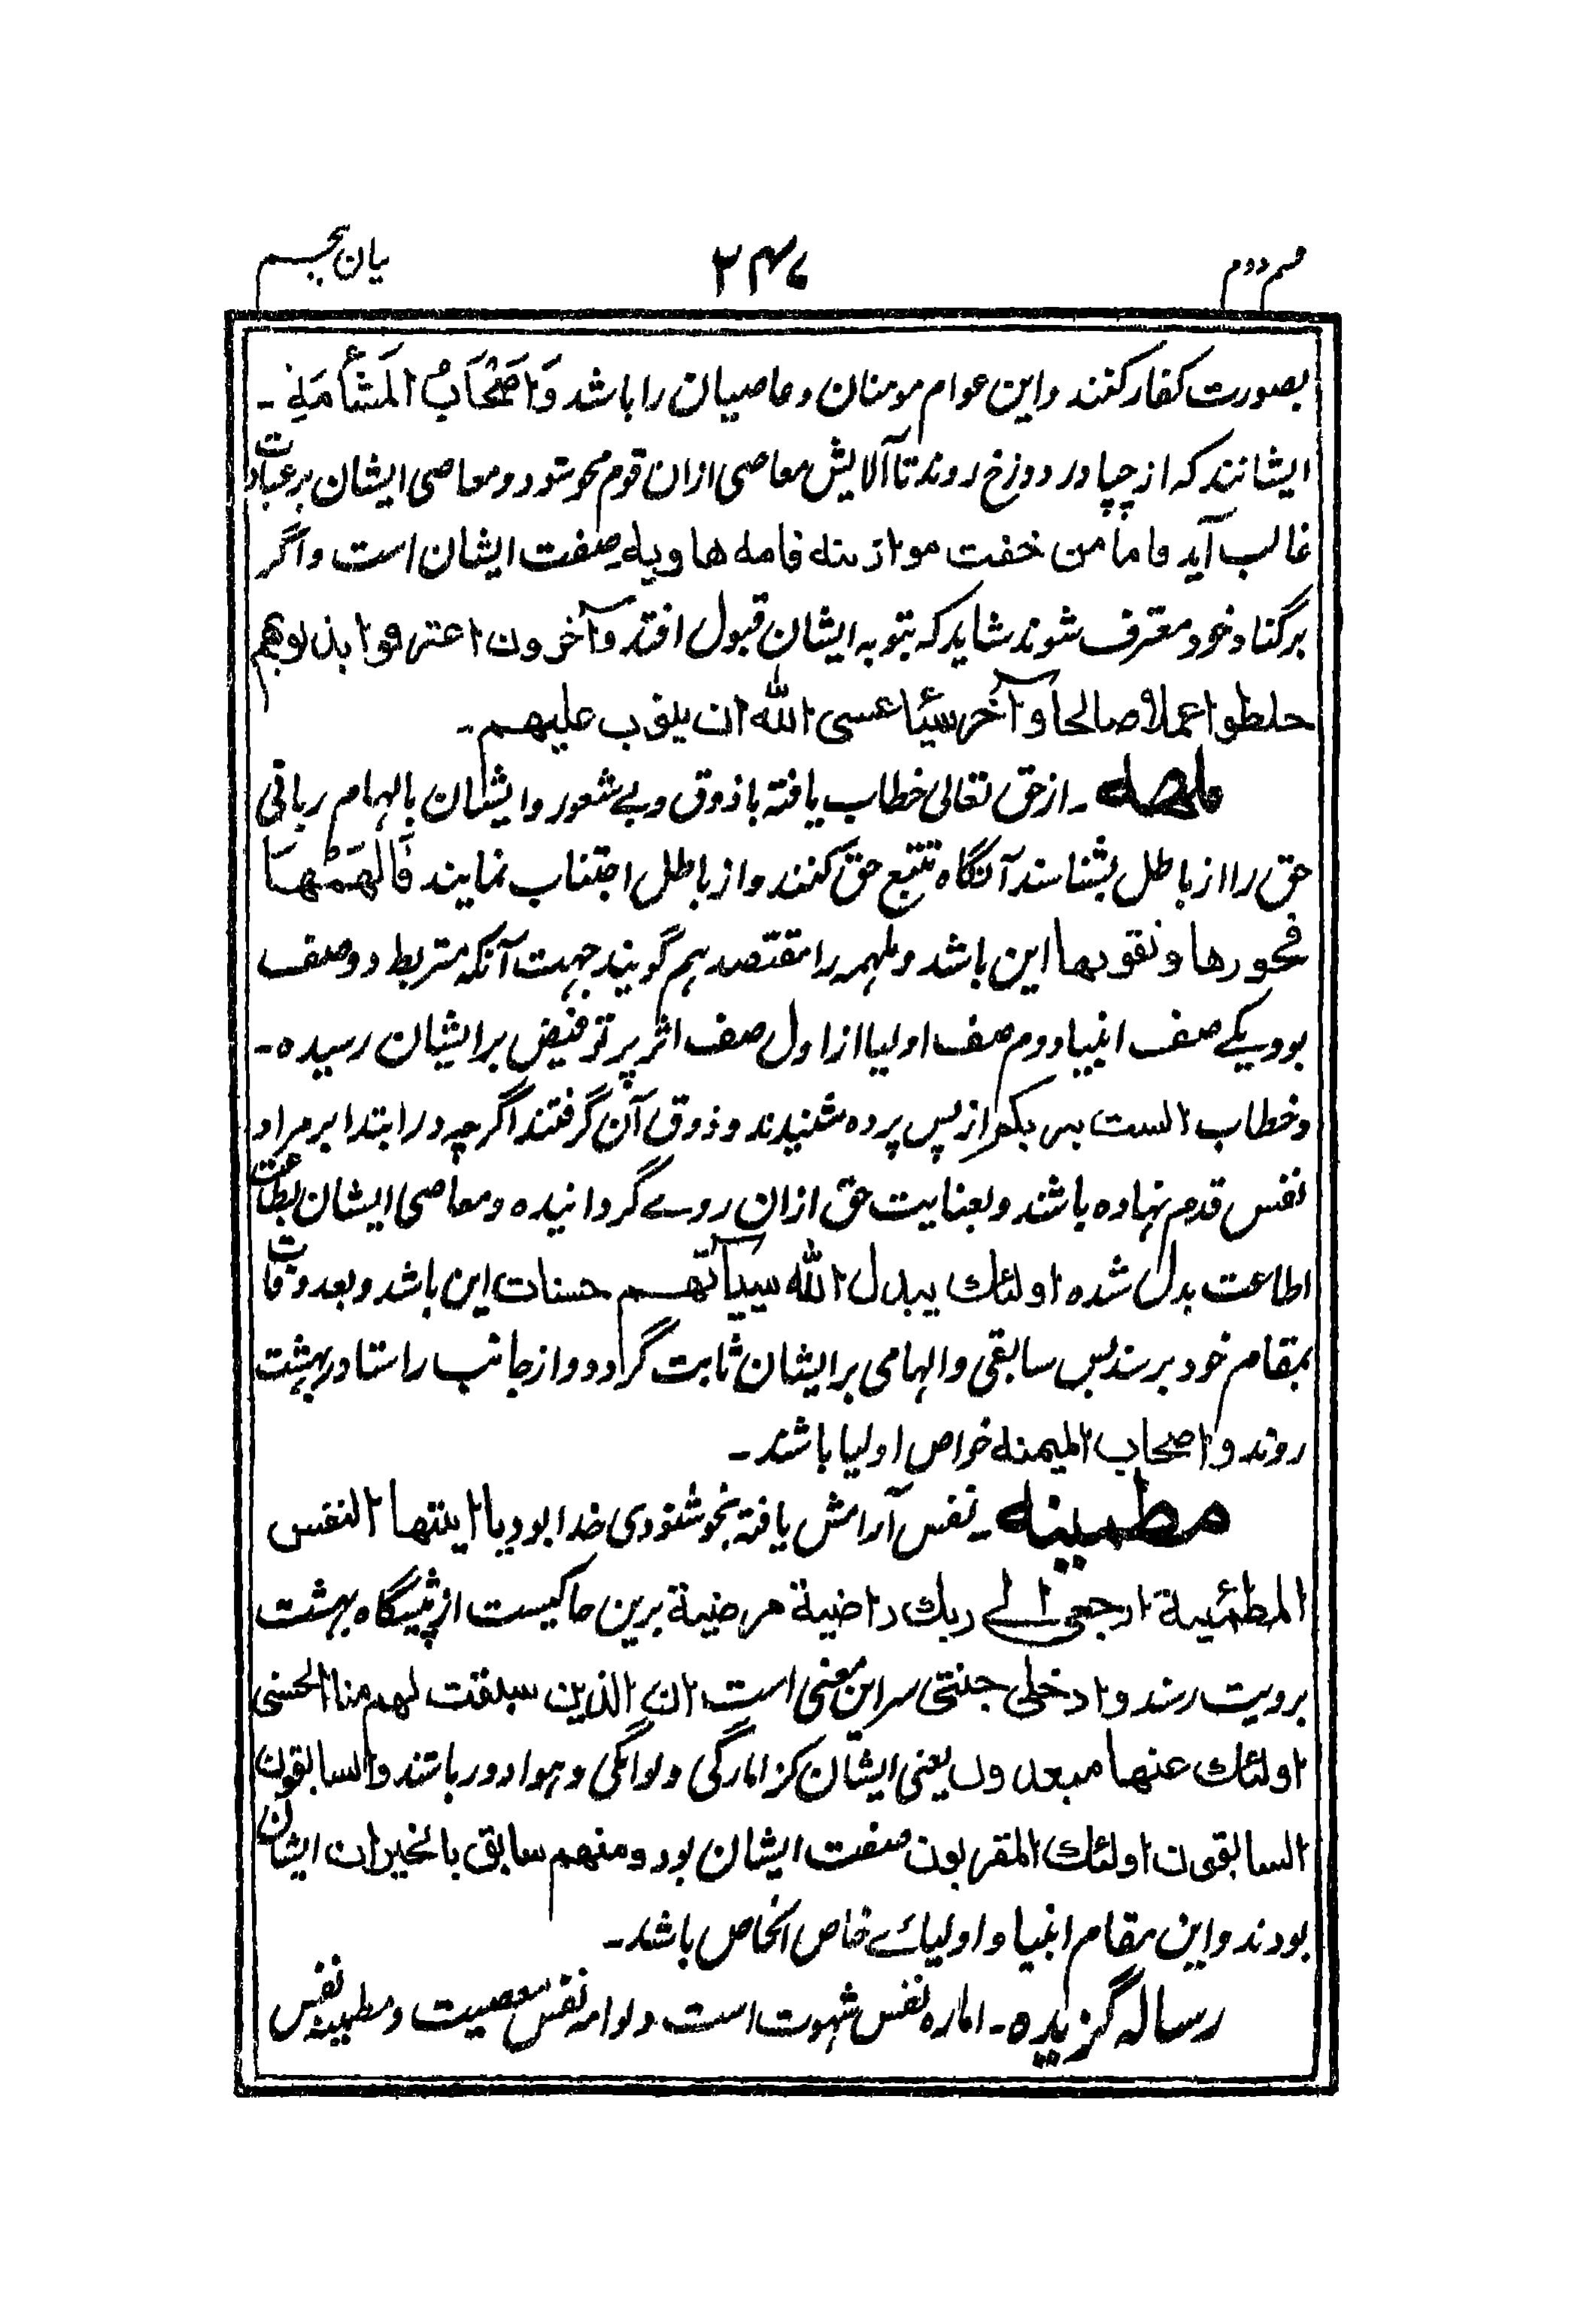 قسم دوم ۳۴۷ بیان پنجم
بصورت کفار کنند و این عوام مومنان و عاصیان را باشد وَاَصْحَابُ الْمَشْأَمَةِ ۔
ایشانند که از چپا در دوزخ روند تا آلایش معاصی ازان قوم محو شود و معاصی ایشان بر عبادت
غالب آید فاما من خفت موازینه فامه هاویه صفت ایشان است و اگر
بر گناه خود معترف شوند شاید که بتوبه ایشان قبول افتد و آخرون اعترفوا بذنوبهم
خلطوا عملا صالحا و آخر سیئا عسی الله ان یتوب علیهم ۔
ملهمه ۔ از حق تعالی خطاب یافته با ذوق و بے شعور و ایشان بالهام ربانی
حق را از باطل بشناسند آنگاه تتبع حق کنند و از باطل اجتناب نمایند فَاَلْهَمَهَا
فجورها و تقوىها این باشد و ملهمه را مقتصد هم گویند جهت آنکه متربط دو صف
بود یکے صف انبیا دوم صف اولیا از اول صف اثر پر تو فیض بر ایشان رسیده ۔
و خطاب الست بربکم از پس پرده شنیدند و ذوق آن گرفتند اگرچه در ابتدا بر مراد
نفس قدم نهاده باشند و بعنایت حق ازان روے گردانیده و معاصی ایشان بطاعت
اطاعت بدل شده اولئک یبدل الله سیآتهم حسنات این باشد و بعد وفات
بمقام خود برسند پس سابقی و الهامی بر ایشان ثابت گردد و از جانب راستا در بهشت
روند و اصحاب المیمنه خواص اولیا باشند ۔
مطمینه ۔ نفس آرامش یافته بخوشنودی خدا بود یا ایتها النفس
المطمئنة ارجعی الے ربک راضیة مرضیة برین حاکیست از پیشگاه بهشت
برویت رسند و ادخلی جنتی سر این معنی است ان الذین سبقت لهم منا الحسنی
اولئک عنها مبعدون یعنی ایشان کز امارگی و لوامگی و هوا دور باشند والسابقون
السابقون اولئک المقربون صفت ایشان بود و منهم سابق بالخیرات ایشان
بودند و این مقام انبیا و اولیاے خاص الخاص باشد ۔
رساله گزیده ۔ اماره نفس شهوت است و لوامه نفس معصیت و مطمینه نفس